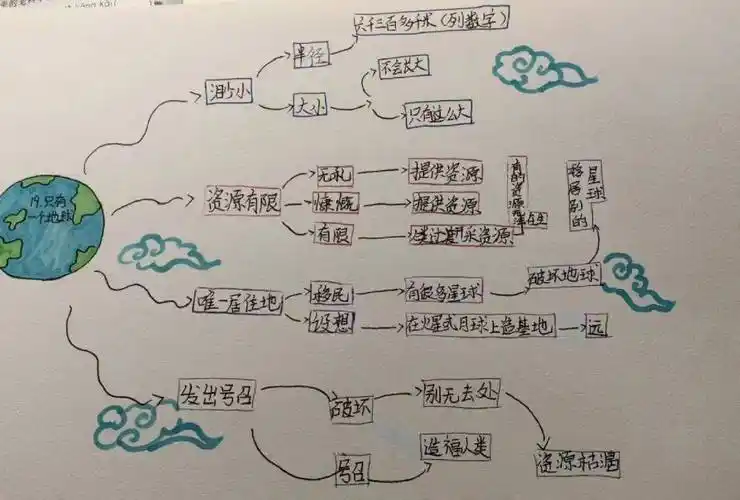 19.只有
一个地球
渺小
半径
六千三百多千米(列数字)
大小
不会长大
只有这么大
资源有限
无私
提供资源
慷慨
提供资源
有限
唯一居住地
移民
有很多星球
破坏地球
移居别的
星球
设想
在火星或月球上造基地
远
发出号召
破坏
别无去处
资源枯竭
号召
造福人类